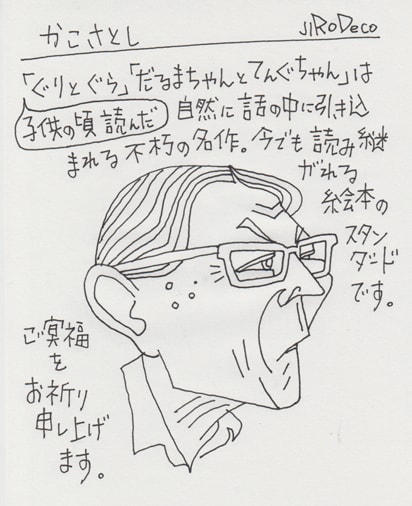 かこさとし
JiRoDeco
「ぐりとぐら」「だるまちゃんとてんぐちゃん」は
子供の頃読んだ 自然に話の中に引き込
まれる不朽の名作。今でも読み継
がれる
絵本の
スタン
ダード
です。
ご冥福
を
お祈り
申し上げ
ます。